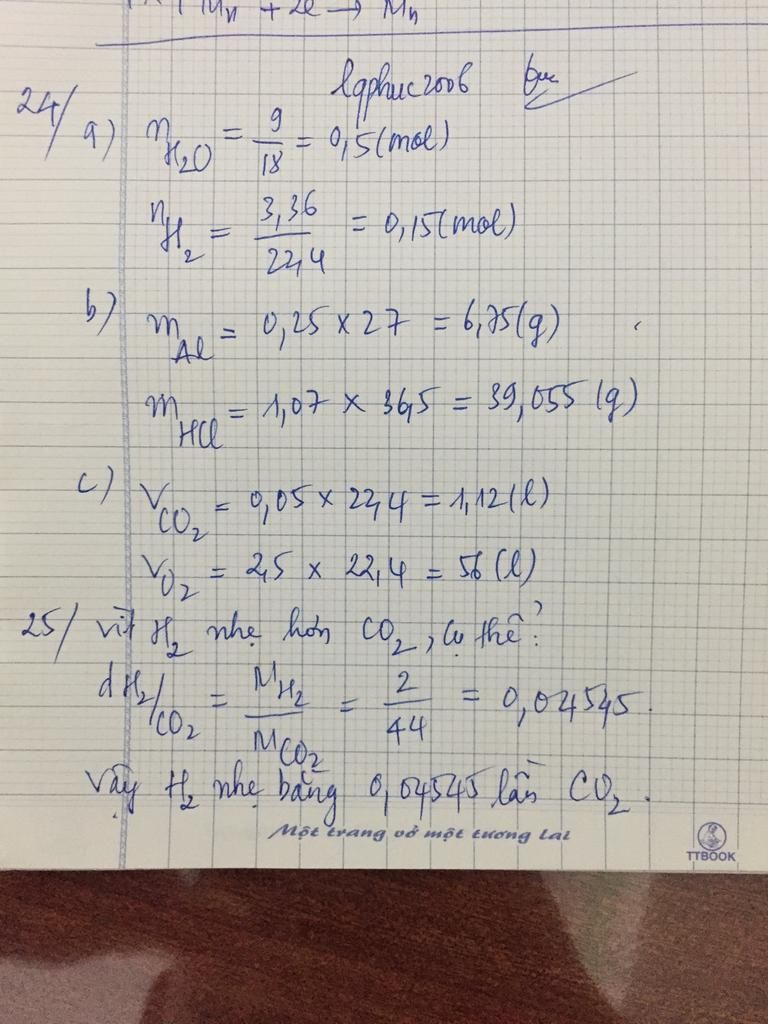 Mn + 2e → Mn
lqphuc2006
24/ a) n H₂O = 9/18 = 0,5 (mol)
n H₂ = 3,36/22,4 = 0,15 (mol)
b) m Al = 0,25 × 27 = 6,75 (g)
m HCl = 1,07 × 36,5 = 39,055 (g)
c) V CO₂ = 0,05 × 22,4 = 1,12 (l)
V O₂ = 2,5 × 22,4 = 56 (l)
25/ Vì H₂ nhẹ hơn CO₂, cụ thể:
d H₂/CO₂ = M H₂/M CO₂ = 2/44 = 0,04545.
Vậy H₂ nhẹ bằng 0,04545 lần CO₂.
Một trang vở một tương lai
TTBOOK